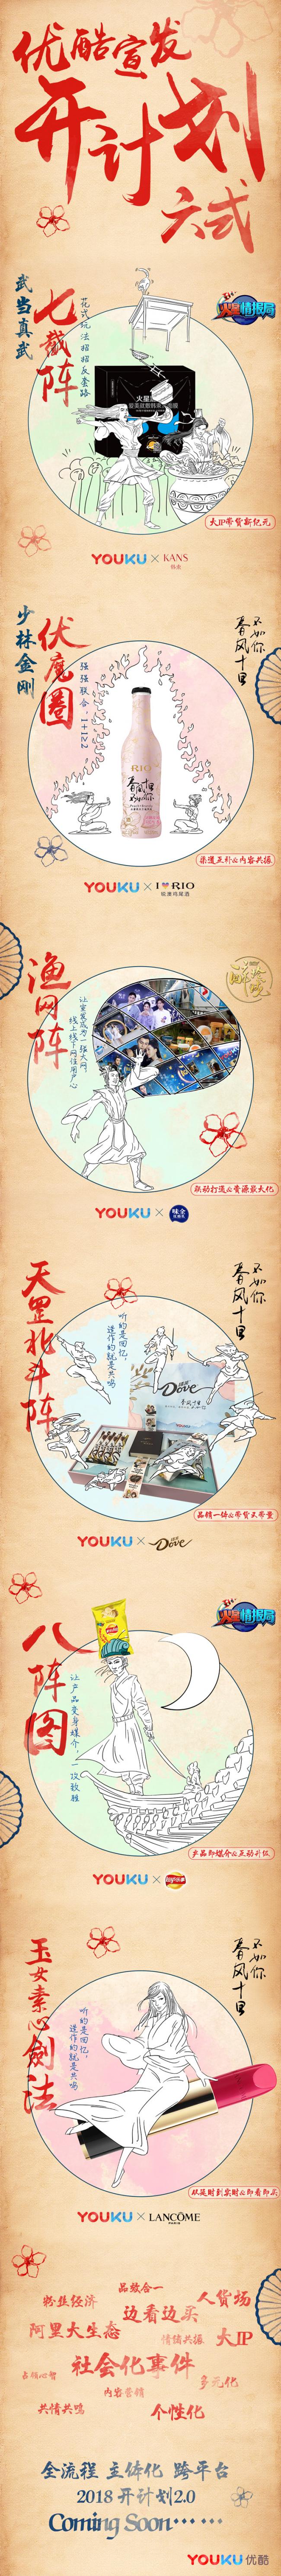 优酷宣发
开计划
六式
武当真武
七截阵
花式玩法招招反套路
火星情报局
大IP带货新纪元
YOUKU × KANS
韩束
少林金刚
伏魔圈
强强联合，1+1≥2
春风十里
不如你
RIO
春风十里
不如你
渠道互补&内容共振
YOUKU × I RIO
锐澳鸡尾酒
渔网阵
让宣发成为一张大网，
线上线下网住用户心
联动打通&资源最大化
YOUKU × 味全
天罡北斗阵
听的是回忆
造作的就是共鸣
春风十里
不如你
Dove
春风十里
品销一体&带货又带量
YOUKU × Dove
八阵图
让产品变身媒介，一攻致胜
火星情报局
产品即媒介&互动升级
YOUKU × Lay's乐事
玉女素心剑法
听的是回忆，
造作的就是共鸣
春风十里
不如你
从延时到实时&即看即买
YOUKU × LANCÔME
PARIS
粉丝经济
品效合一
人货场
边看边买
阿里大生态
情绪共振
大IP
社会化事件
占领心智
多元化
内容营销
共情共鸣
个性化
全流程 主体化 跨平台
2018 开计划2.0
Coming Soon······
YOUKU 优酷